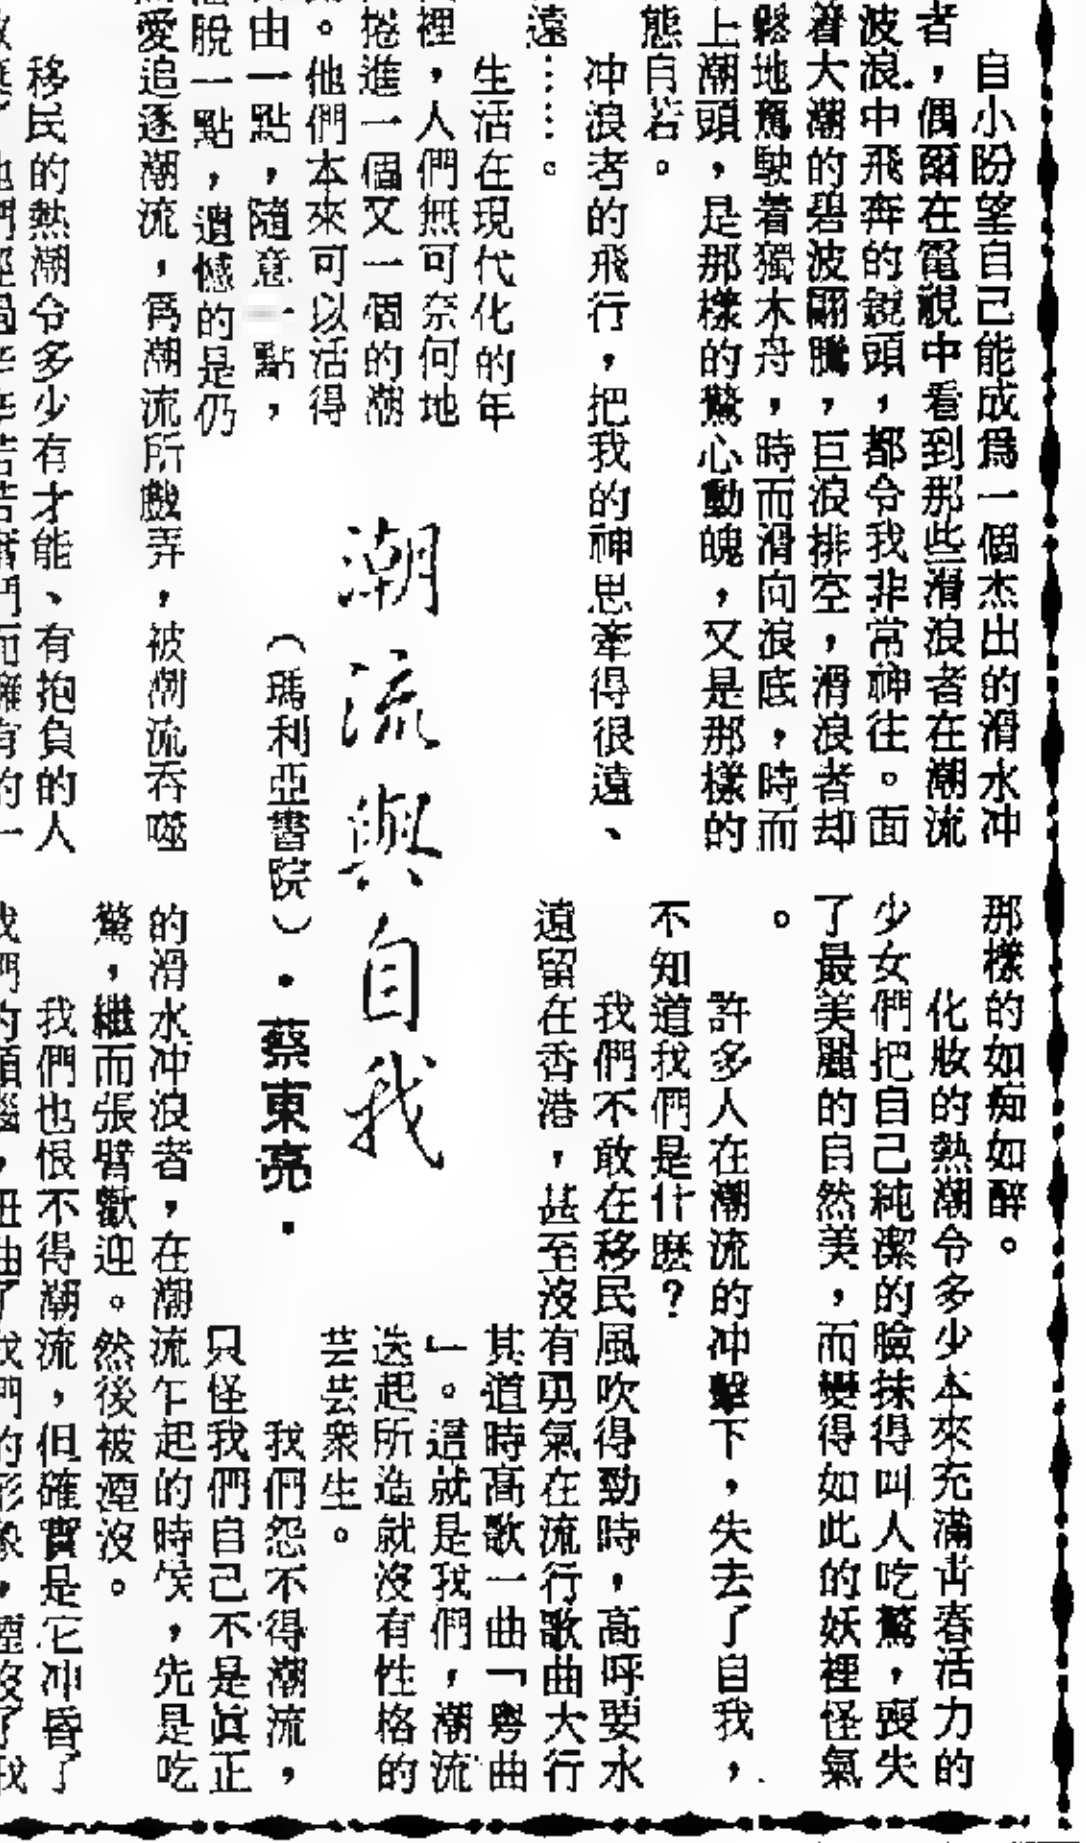 潮流與自我
（瑪利亞書院）•蔡東亮•
自小盼望自己能成爲一個杰出的滑水冲
者，偶爾在電視中看到那些滑浪者在潮流
波浪中飛奔的鏡頭，都令我非常神往。面
着大潮的碧波翻騰，巨浪排空，滑浪者却
鬆地駕駛着獨木舟，時而滑向浪底，時而
上潮頭，是那樣的驚心動魄，又是那樣的
態自若。
冲浪者的飛行，把我的神思牽得很遠、
遠……。
生活在現代化的年
裡，人們無可奈何地
捲進一個又一個的潮
。他們本來可以活得
由一點，隨意一點，
脫一點，遺憾的是仍
愛追逐潮流，爲潮流所戲弄，被潮流吞噬
移民的熱潮令多少有才能、有抱負的人
那樣的如痴如醉。
化妝的熱潮令多少本來充滿靑春活力的
少女們把自己純潔的臉抹得叫人吃驚，喪失
了最美麗的自然美，而變得如此的妖裡怪氣
。
許多人在潮流的冲擊下，失去了自我，
不知道我們是什麽？
我們不敢在移民風吹得勁時，高呼要永
遠留在香港，甚至沒有勇氣在流行歌曲大行
其道時高歌一曲「粤曲
」。這就是我們，潮流
迭起所造就沒有性格的
芸芸衆生。
我們怨不得潮流，
只怪我們自己不是眞正
的滑水冲浪者，在潮流乍起的時候，先是吃
驚，繼而張臂歡迎。然後被湮沒。
我們也恨不得潮流，但確實是它冲昏了
我們的頭腦，扭曲了我們的形象，湮沒了我